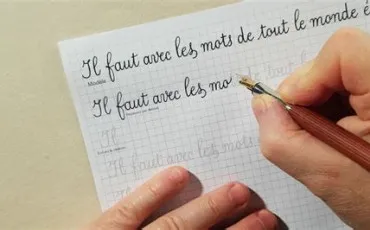 Il faut avec les mots de tout le monde é
Modèle
Il faut avec les mo
Il
Il faut avec les mots